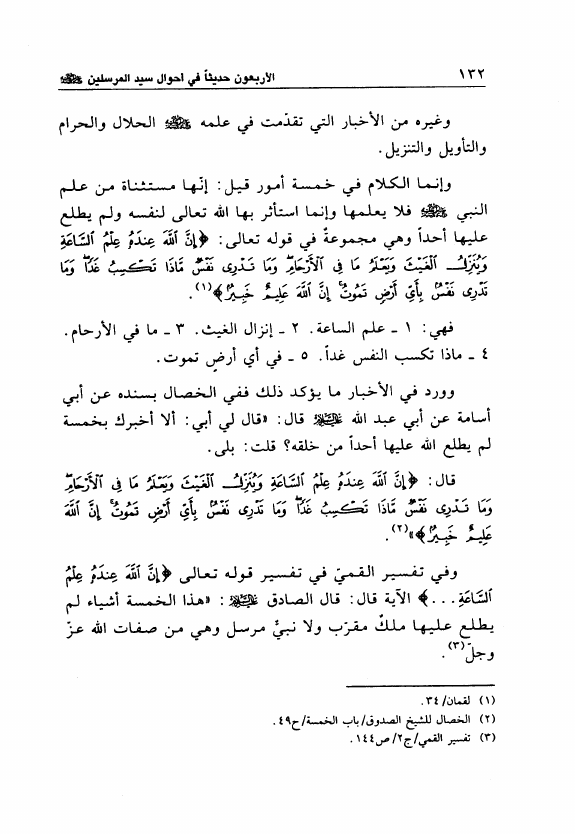 ١٣٢ الأربعون حديثاً في أحوال سيد المرسلين ﷺ
وغيره من الأخبار التي تقدّمت في علمه ﷺ الحلال والحرام
والتأويل والتنزيل.
وإنما الكلام في خمسة أمور قيل: إنّها مستثناة من علم
النبي ﷺ فلا يعلمها وإنما استأثر بها الله تعالى لنفسه ولم يطلع
عليها أحداً وهي مجموعةً في قوله تعالى: ﴿إِنَّ ٱللَّهَ عِندَهُۥ عِلْمُ ٱلسَّاعَةِ
وَيُنَزِّلُ ٱلْغَيْثَ وَيَعْلَمُ مَا فِى ٱلْأَرْحَامِ ۖ وَمَا تَدْرِى نَفْسٌ مَّاذَا تَكْسِبُ غَدًا ۖ وَمَا
تَدْرِى نَفْسٌۢ بِأَىِّ أَرْضٍ تَمُوتُ ۚ إِنَّ ٱللَّهَ عَلِيمٌ خَبِيرٌۢ﴾(١).
فهي: ١ ـ علم الساعة. ٢ ـ إنزال الغيث. ٣ ـ ما في الأرحام.
٤ ـ ماذا تكسب النفس غداً. ٥ ـ في أي أرضٍ تموت.
وورد في الأخبار ما يؤكد ذلك ففي الخصال بسنده عن أبي
أسامة عن أبي عبد الله عليه السلام قال: «قال لي أبي: ألا أخبرك بخمسة
لم يطلع الله عليها أحداً من خلقه؟ قلت: بلى.
قال: ﴿إِنَّ ٱللَّهَ عِندَهُۥ عِلْمُ ٱلسَّاعَةِ وَيُنَزِّلُ ٱلْغَيْثَ وَيَعْلَمُ مَا فِى ٱلْأَرْحَامِ ۖ
وَمَا تَدْرِى نَفْسٌ مَّاذَا تَكْسِبُ غَدًا ۖ وَمَا تَدْرِى نَفْسٌۢ بِأَىِّ أَرْضٍ تَمُوتُ ۚ إِنَّ ٱللَّهَ
عَلِيمٌ خَبِيرٌۢ﴾»(٢).
وفي تفسير القميّ في تفسير قوله تعالى ﴿إِنَّ ٱللَّهَ عِندَهُۥ عِلْمُ
ٱلسَّاعَةِ...﴾ الآية قال: قال الصادق عليه السلام: «هذا الخمسة أشياء لم
يطلع عليها ملكٌ مقرّب ولا نبيٌّ مرسل وهي من صفات الله عزّ
وجلّ(٣).
(١) لقمان/٣٤.
(٢) الخصال للشيخ الصدوق/باب الخمسة/ح٤٩.
(٣) تفسير القمي/ج٢/ص١٤٤.